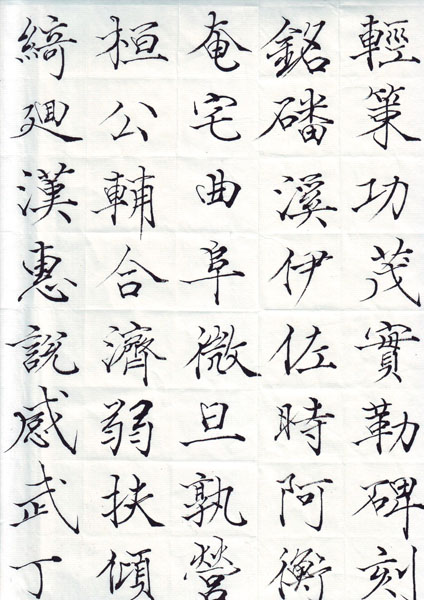 輕策功茂實勒碑刻
銘磻溪伊佐時阿衡
奄宅曲阜微旦孰營
桓公輔合濟弱扶傾
綺迴漢惠說感武丁